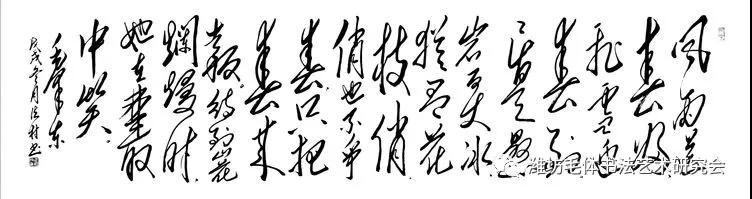 风雨送
春归
飞雪迎
春到
已是悬
岩百丈冰
犹有花
枝俏
俏也不争
春只把
春来
报待到山花
烂熳时
她在丛
中笑
毛泽东
戊戌冬月
潍坊毛体书法艺术研究会